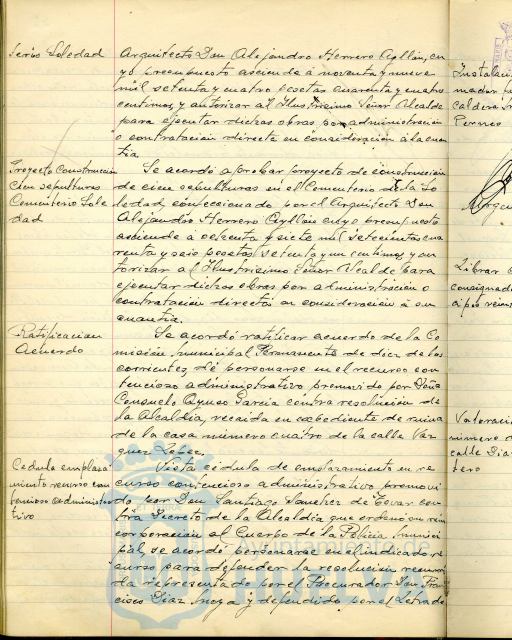 terio Soledad
Arquitecto Don Alejandro Herrero Ayllón, cu
yo presupuesto asciende a noventa y nueve
mil setenta y cuatro pesetas cuarenta y cuatro
centimos, y autorizar al Ilustrisimo Señor Alcalde
para ejecutar dichas obras por administración
o contratación directa en consideración a la cuan
tia.
Proyecto Construccion
cien sepulturas
Cementerio Sole
dad
Se acordó aprobar proyecto de construccion
de cien sepulturas en el Cementerio de la So
ledad, confeccionado por el Arquitecto Don
Alejandro Herrero Ayllón cuyo presupuesto
asciende a ochenta y siete mil setecientas cua
renta y seis pesetas setenta y un centimos, y au
torizar al Ilustrisimo Señor Alcalde para
ejecutar dichas obras por administración o
contratación directa en consideración a su
cuantia.
Ratificacion
Acuerdo
Se acordó ratificar acuerdo de la Co
misión Municipal Permanente de diez de los
corrientes, de personarse en el recurso con
tencioso administrativo promovido por Doña
Consuelo Ayuso Garcia contra resolución de
la Alcaldia, recaida en expediente de ruina
de la casa número cuatro de la calle Vaz
quez Lopez.
Cedula emplaza
miento recurso con
tencioso administra
tivo
Vista cédula de emplazamiento en re
curso contencioso administrativo promovi
do por Don Santiago Sanchez de Tovar con
tra Decreto de la Alcaldia que ordenó su rein
corporación al Cuerpo de la Policia Munici
pal, se acordó personarse en el indicado re
curso para defender la resolución recurri
da representado por el Procurador Don Fran
cisco Diaz y defendido por el Letrado
Instalación
mador
caldera
Perros
Librar
consignad
Valoració
número
calle Dia
tero
Ayuntamiento de
HUELVA